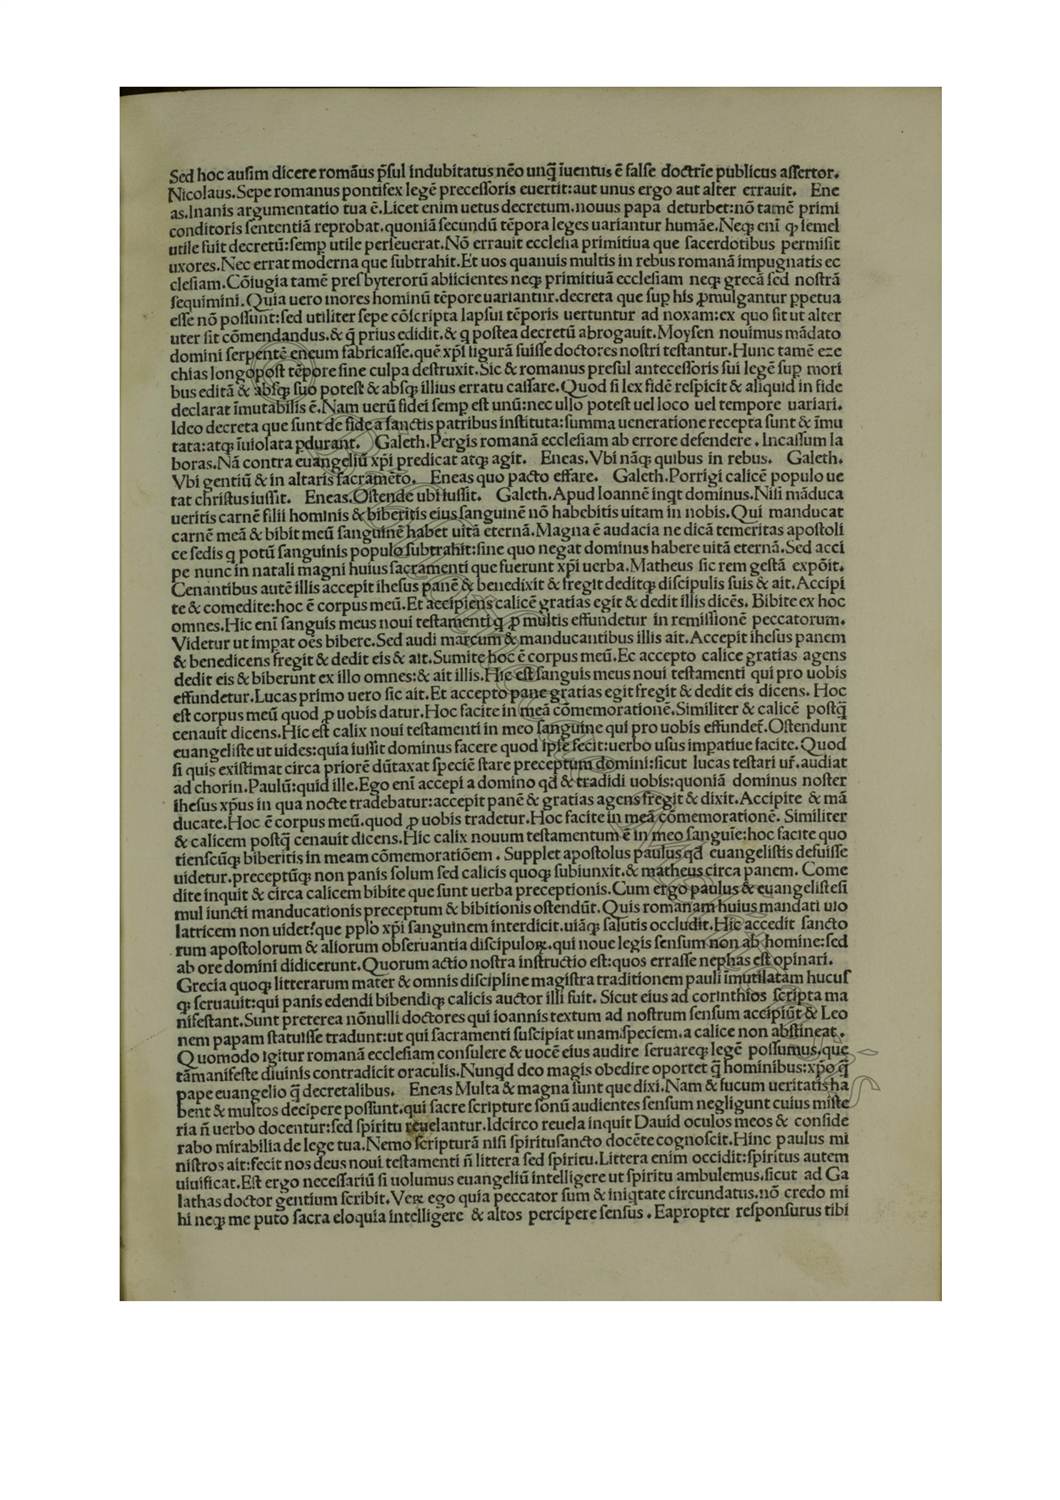 Sed hoc ausim dicere romãus p̃sul indubitatus nẽo unq̃ ĩuentus ẽ false doctrĩe publicus assertor.
Nicolaus. Sepe romanus pontifex legẽ precessoris euertit: aut unus ergo aut alter errauit. Ene
as. Inanis argumentatio tua ẽ. Licet enim uetus decretum. nouus papa deturbet: nõ tamẽ primi
conditoris sententiã reprobat. quoniã secundũ tẽpora leges uariantur humãe. Neqꝫ enĩ ꝙ semel
utile fuit decretũ: semp utile perseuerat. Nõ errauit ecclesia primitiua que sacerdotibus permisit
uxores. Nec errat moderna que subtrahit. Et uos quanuis multis in rebus romanã impugnatis ec
clesiam. Cõiugia tamẽ presbyterorũ abiicientes neqꝫ primitiuã ecclesiam neqꝫ grecã sed nostrã
sequimini. Quia uero mores hominũ tẽpore uariantur. decreta que sup his ꝓmulgantur ꝑpetua
esse nõ possunt: sed utiliter sepe cõscripta lapsui tẽporis uertuntur ad noxam: ex quo fit ut alter
uter sit cõmendandus. & q̃ prius edidit. & q postea decretũ abrogauit. Moysen nouimus mãdato
domini serpentẽ eneum fabricasse. quẽ xp̃i figurã fuisse doctores nostri testantur. Hunc tamẽ eze
chias longo post tẽpore sine culpa destruxit. Sic & romanus presul antecessoris sui legẽ sup mori
bus editã & absqꝫ suo potest & absqꝫ illius erratu cassare. Quod si lex fidẽ respicit & aliquid in fide
declarat ĩmutabilis ẽ. Nam uerũ fidei semp est unũ: nec ullo potest uel loco uel tempore uariari.
Ideo decreta que sunt de fide a sanctis patribus instituta: summa ueneratione recepta sunt & ĩmu
tata: atqꝫ ĩuiolata ꝑdurant. Galeth. Pergis romanã ecclesiam ab errore defendere. Incassum la
boras. Nã contra euangeliũ xp̃i predicat atqꝫ agit. Eneas. Vbi nãqꝫ quibus in rebus. Galeth.
Vbi gentiũ & in altaris sacramẽto. Eneas quo pacto effare. Galeth. Porrigi calicẽ populo ue
tat christus iussit. Eneas. Ostende ubi iussit. Galeth. Apud Ioannẽ inqt dominus. Nisi mãduca
ueritis carnẽ filii hominis & biberitis eius sanguinẽ nõ habebitis uitam in nobis. Qui manducat
carnẽ meã & bibit meũ sanguinẽ habet uitã eternã. Magna ẽ audacia ne dicã temeritas apostoli
ce sedis q potũ sanguinis populo subtrahit: sine quo negat dominus habere uitã eternã. Sed acci
pe nunc in natali magni huius sacramenti que fuerunt xp̃i uerba. Matheus sic rem gestã expõit.
Cenantibus autẽ illis accepit ihesus panẽ & benedixit & fregit deditqꝫ discipulis suis & ait. Accipi
te & comedite: hoc ẽ corpus meũ. Et accipiens calicẽ gratias egit & dedit illis dicẽs. Bibite ex hoc
omnes. Hic enĩ sanguis meus noui testamenti q ꝓ multis effundetur in remissionẽ peccatorum.
Videtur ut impat oẽs bibere. Sed audi marcum & manducantibus illis ait. Accepit ihesus panem
& benedicens fregit & dedit eis & ait. Sumite hoc ẽ corpus meũ. Ec accepto calice gratias agens
dedit eis & biberunt ex illo omnes: & ait illis. Hic est sanguis meus noui testamenti qui pro uobis
effundetur. Lucas primo uero sic ait. Et accepto pane gratias egit fregit & dedit eis dicens. Hoc
est corpus meũ quod ꝓ uobis datur. Hoc facite in meã cõmemorationẽ. Similiter & calicẽ postq̃
cenauit dicens. Hic est calix noui testamenti in meo sanguine qui pro uobis effundet̃. Ostendunt
euangeliste ut uides: quia iussit dominus facere quod ipse fecit: uerbo usus impatiue facite. Quod
si quis existimat circa priorẽ dũtaxat speciẽ stare preceptum domini: sicut lucas testari ur̃. audiat
ad chorin. Paulũ: quid ille. Ego enĩ accepi a domino qd̃ & tradidi uobis: quoniã dominus noster
ihesus xp̃us in qua nocte tradebatur: accepit panẽ & gratias agens fregit & dixit. Accipite & mã
ducate. Hoc ẽ corpus meũ. quod ꝓ uobis tradetur. Hoc facite in meã cõmemorationẽ. Similiter
& calicem postq̃ cenauit dicens. Hic calix nouum testamentum ẽ in meo sanguĩe: hoc facite quo
tienscũqꝫ biberitis in meam cõmemoratiõem. Supplet apostolus paulus qd̃ euangelistis defuisse
uidetur. preceptũqꝫ non panis solum sed calicis quoqꝫ subiunxit. & matheus circa panem. Come
dite inquit & circa calicem bibite que sunt uerba preceptionis. Cum ergo paulus & euangeliste si
mul iuncti manducationis preceptum & bibitionis ostendũt. Quis romanam huius mandati uio
latricem non uidet? que pplo xp̃i sanguinem interdicit. uiãqꝫ salutis occludit. Hic accedit sancto
rum apostolorum & aliorum obseruantia discipuloꝝ. qui noue legis sensum non ab homine: sed
ab ore domini didicerunt. Quorum actio nostra instructio est: quos errasse nephas est opinari.
Grecia quoqꝫ litterarum mater & omnis discipline magistra traditionem pauli ĩmutilatam hucus
qꝫ seruauit: qui panis edendi bibendiqꝫ calicis auctor illi fuit. Sicut eius ad corinthios scripta ma
nifestant. Sunt preterea nõnulli doctores qui ioannis textum ad nostrum sensum accipiũt & Leo
nem papam statuisse tradunt: ut qui sacramenti suscipiat unam speciem. a calice non abstineat.
Quomodo igitur romanã ecclesiam consulere & uocẽ eius audire seruareqꝫ legẽ possumus. que
tãmanifeste diuinis contradicit oraculis. Nunqd deo magis obedire oportet q̃ hominibus: xp̃o q̃
pape euangelio q̃ decretalibus. Eneas Multa & magna sunt que dixi. Nam & fucum ueritatis ha
bent & multos decipere possunt. qui sacre scripture sonũ audientes sensum negligunt cuius miste
ria ñ uerbo docentur: sed spiritu reuelantur. Idcirco reuela inquit Dauid oculos meos & conside
rabo mirabilia de lege tua. Nemo scripturã nisi spiritusancto docẽte cognoscit. Hinc paulus mi
nistros ait: fecit nos deus noui testamenti ñ littera sed spiritu. Littera enim occidit: spiritus autem
uiuificat. Est ergo necessariũ si uolumus euangeliũ intelligere ut spiritu ambulemus. sicut ad Ga
lathas doctor gentium scribit. Veꝝ ego quia peccator sum & iniqtate circundatus. nõ credo mi
hi neqꝫ me puto sacra eloquia intelligere & altos percipere sensus. Eapropter responsurus tibi